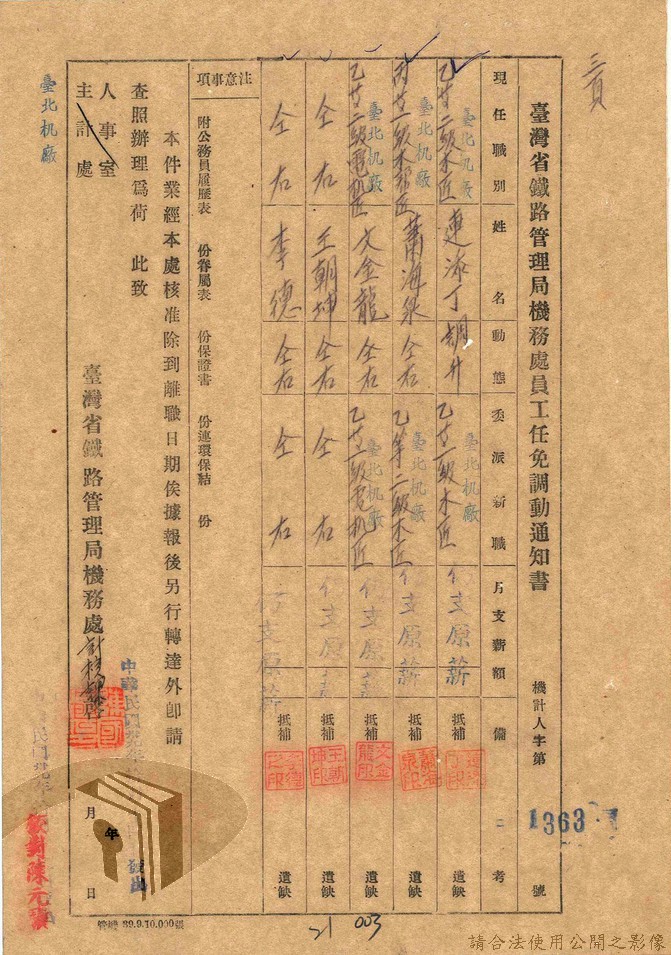 三頁
臺灣省鐵路管理局機務處員工任免調動通知書 機計人字第 1363 號
現任職別 姓名 動態 委派新職 月支薪額 備考
臺北机廠 連添丁 調升 臺北机廠 乙廿一級木匠 仍支原薪 抵補 遺缺
乙廿二級木匠
臺北机廠 蕭海泉 仝右 臺北机廠 仍支原薪 抵補 遺缺
臺北机廠 文金龍 仝右 臺北机廠 仍支原薪 抵補 文金龍印 遺缺
乙廿二級電机匠
仝右 王朝坤 仝右 仝右 仍支原薪 抵補 王朝坤印 遺缺
仝右 李德 仝右 仝右 仍支原薪 抵補 遺缺
注意事項 附公務員履歷表 份眷屬表 份保證書 份連環保結 份
本件業經本處核准除到離職日期俟據報後另行轉達外卽請
查照辦理爲荷 此致
人事室
主計處
臺灣省鐵路管理局機務處
臺北机廠
中華民國
年 月 日
校對陳元
管機 39.9.10.000張
21 003
請合法使用公開之影像